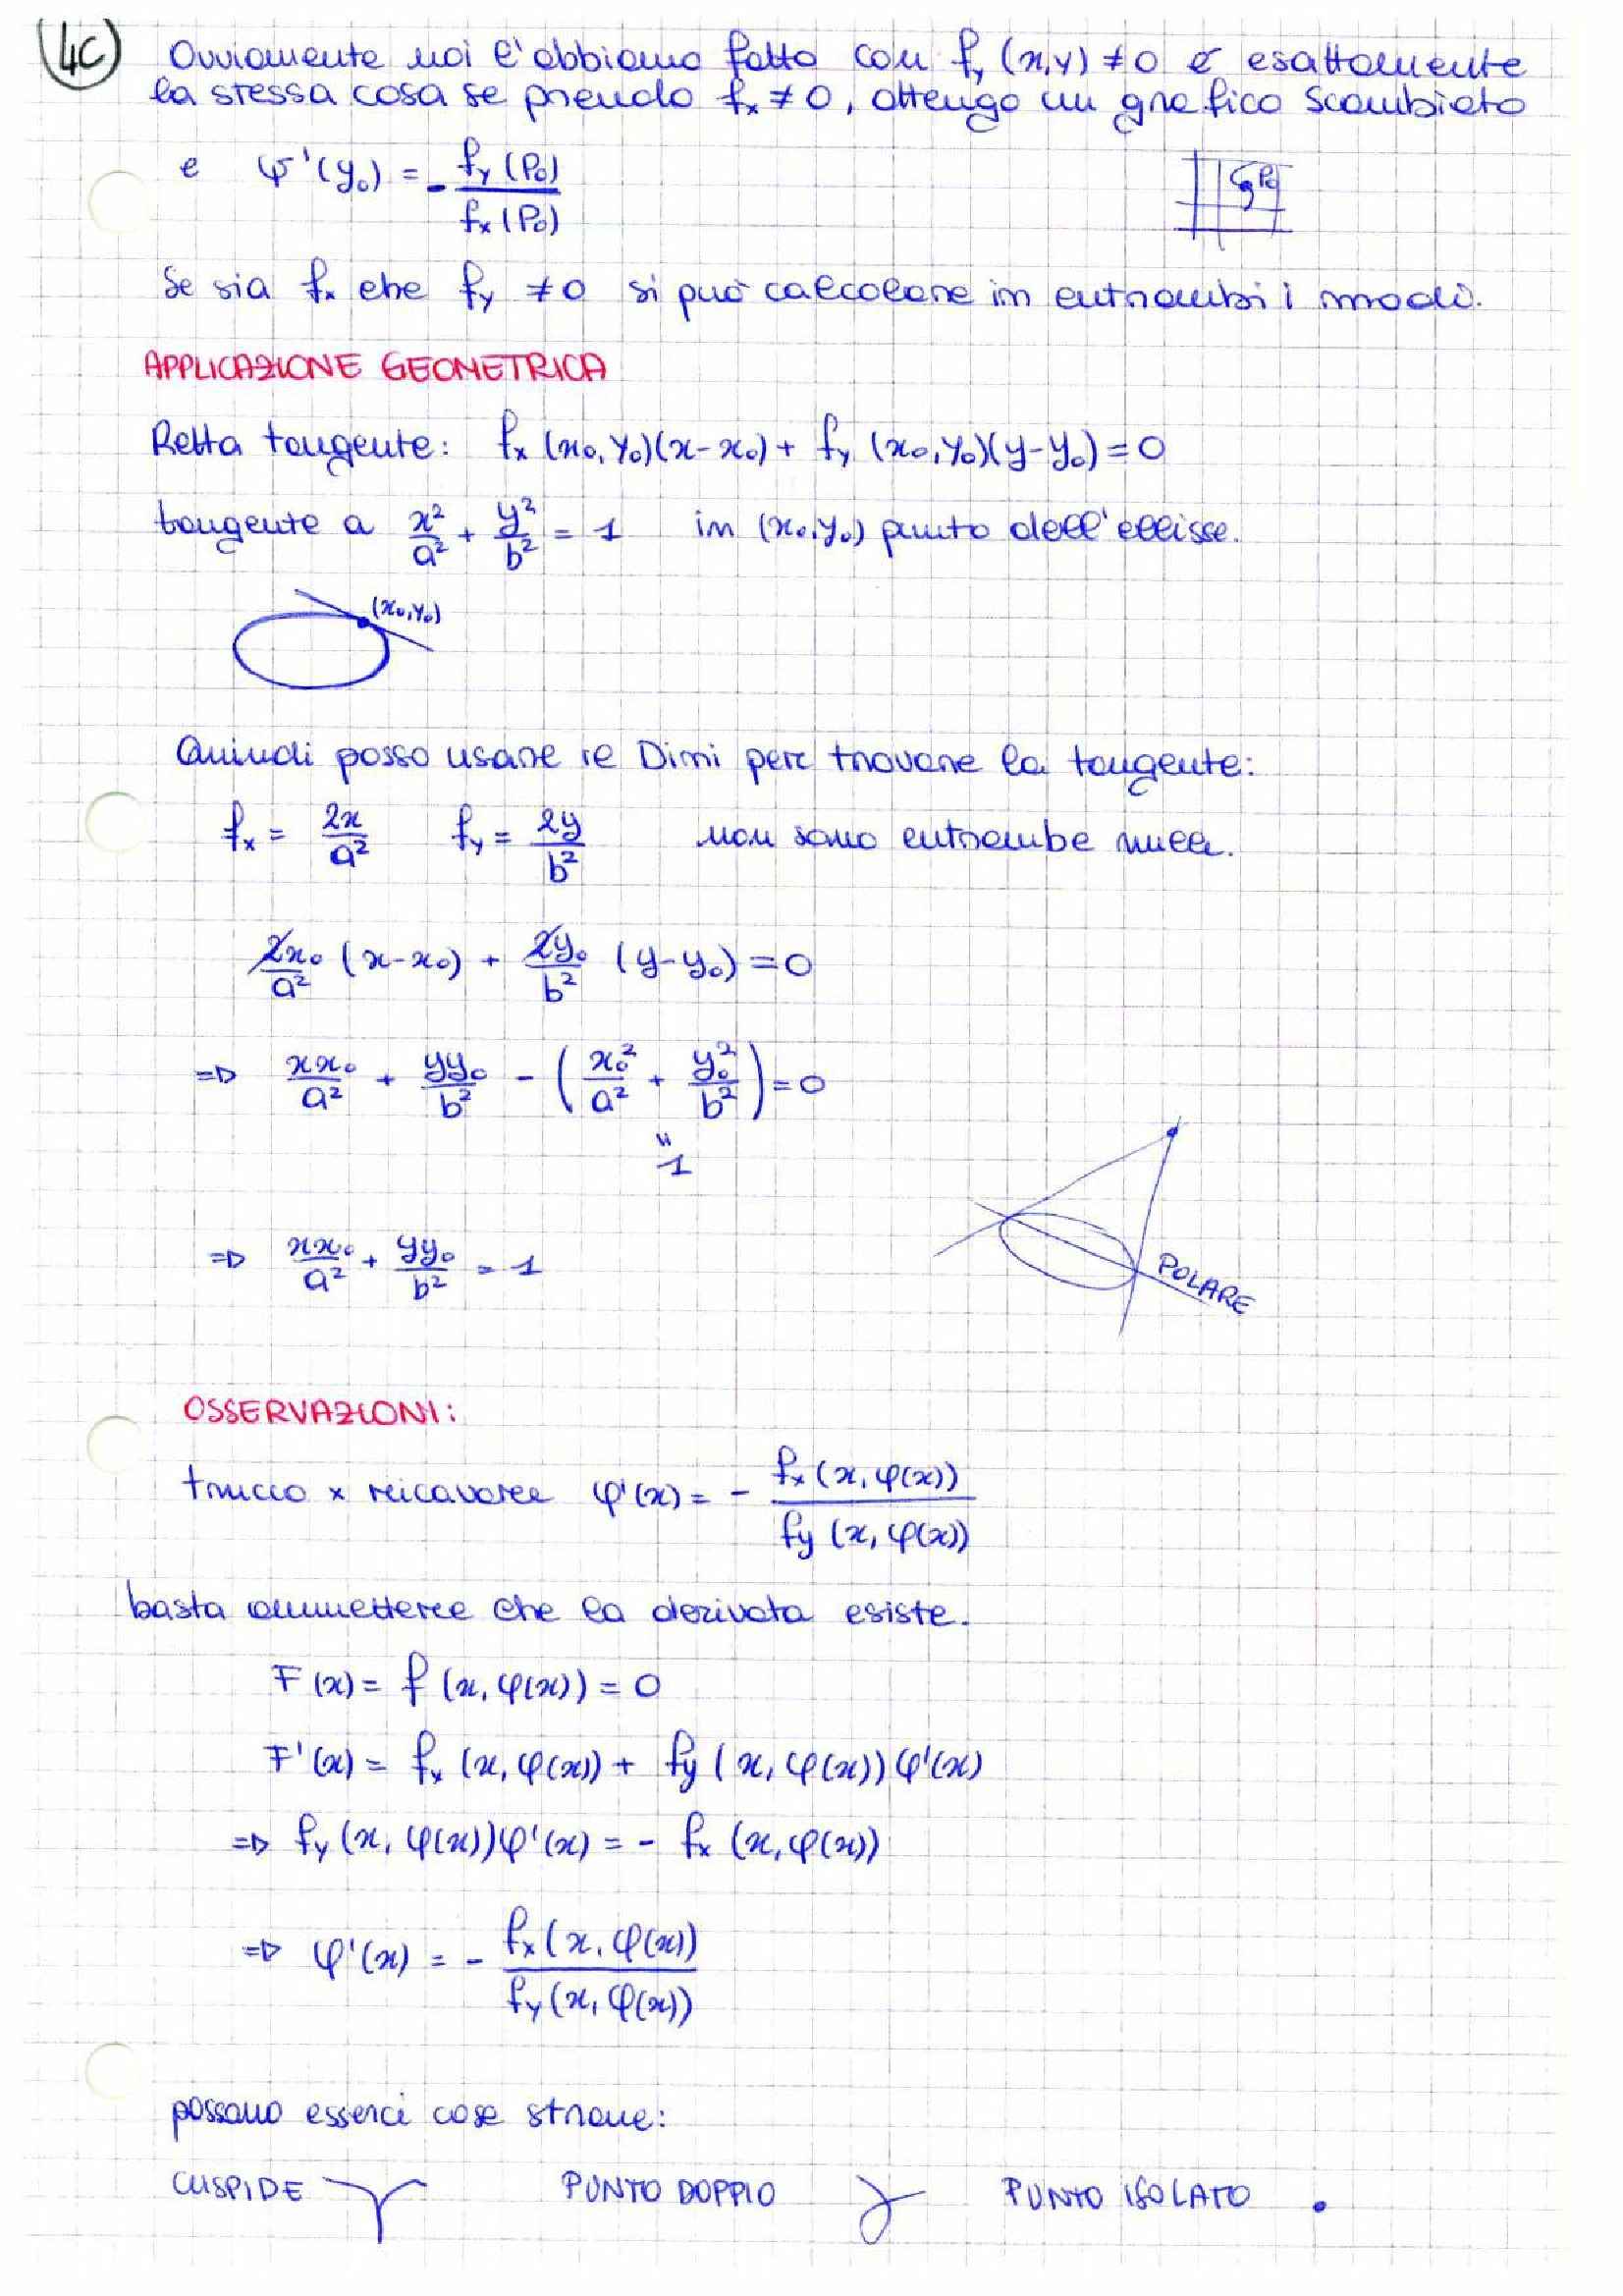 4C
Ovviamente noi l'abbiamo fatto con f_y (x,y) ≠ 0 è esattamente
la stessa cosa se prendo f_x ≠ 0, ottengo un grafico scambiato
e ψ'(y₀) = - f_y (P₀) / f_x (P₀)
P₀
Se sia f_x che f_y ≠ 0 si può calcolare in entrambi i modi.
APPLICAZIONE GEOMETRICA
Retta tangente: f_x (x₀,y₀)(x-x₀) + f_y (x₀,y₀)(y-y₀) = 0
tangente a x²/a² + y²/b² = 1 in (x₀,y₀) punto dell'ellisse.
(x₀,y₀)
Quindi posso usare le Dini per trovare la tangente:
f_x = 2x/a² f_y = 2y/b² non sono entrambe nulle.
2x₀/a² (x-x₀) + 2y₀/b² (y-y₀) = 0
=> xx₀/a² + yy₀/b² - (x₀²/a² + y₀²/b²) = 0
"
1
=> xx₀/a² + yy₀/b² = 1
POLARE
OSSERVAZIONI:
trucco x ricavare φ'(x) = - f_x (x, φ(x)) / f_y (x, φ(x))
basta ammettere che la derivata esiste.
F(x) = f (x, φ(x)) = 0
F'(x) = f_x (x, φ(x)) + f_y (x, φ(x)) φ'(x)
=> f_y (x, φ(x)) φ'(x) = - f_x (x, φ(x))
=> φ'(x) = - f_x (x, φ(x)) / f_y (x, φ(x))
possono esserci cose strane:
CUSPIDE PUNTO DOPPIO PUNTO ISOLATO